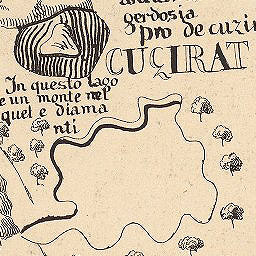 gerdosia
pro de cuzir
CUÇIRAT
In questo lago
e un monte nel
quel e diama
nti